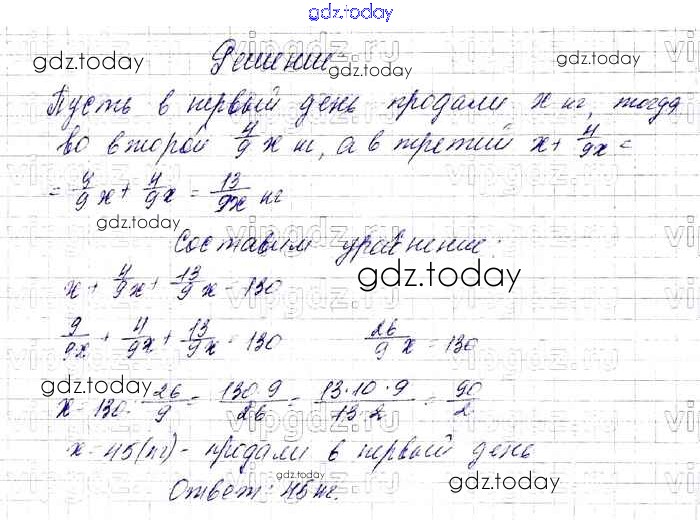 gdz.today
Решение
Пусть в первый день продали x кг, тогда
во второй 4/9 x кг, а в третий x + 4/9x =
= 9/9 x + 4/9 x = 13/9x кг
Составим уравнение:
x + 4/9x + 13/9 x = 130
9/9x + 4/9x + 13/9x = 130 26/9 x = 130
x = 130 : 26/9 = 130·9/26 = 13·10·9/13·2 = 90/2
x = 45(кг) - продали в первый день
Ответ: 45 кг.
gdz.today
gdz.today
gdz.today
gdz.today
gdz.today
gdz.today
gdz.today
gdz.today
vipgdz.ru
vipgdz.ru
vipgdz.ru
vipgdz.ru